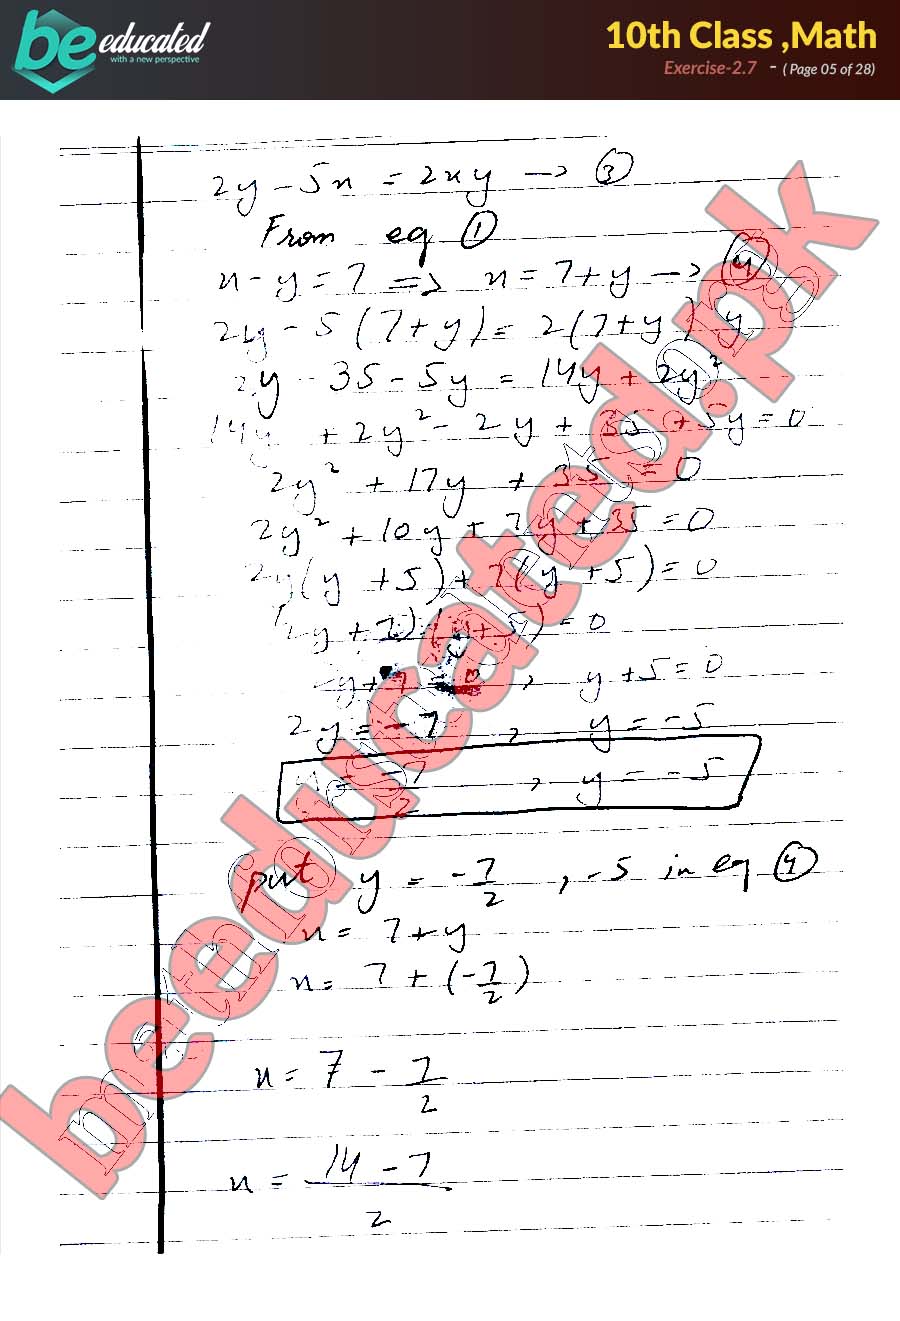 be educated
with a new perspective
10th Class ,Math
Exercise-2.7 - ( Page 05 of 28)
2y - 5x = 2xy → ③
From eq ①
x - y = 7 => x = 7 + y → ④
2y - 5(7+y) = 2(7+y)y
2y - 35 - 5y = 14y + 2y²
14y + 2y² - 2y + 35 + 5y = 0
2y² + 17y + 35 = 0
2y² + 10y + 7y + 35 = 0
2y(y + 5) + 7(y + 5) = 0
(2y + 7)(y + 5) = 0
2y + 7 = 0 , y + 5 = 0
2y = -7 , y = -5
y = -7/2 , y = -5
put y = -7/2 , -5 in eq ④
x = 7 + y
x = 7 + (-7/2)
x = 7 - 7/2
x = 14 - 7 / 2
beeducated.pk